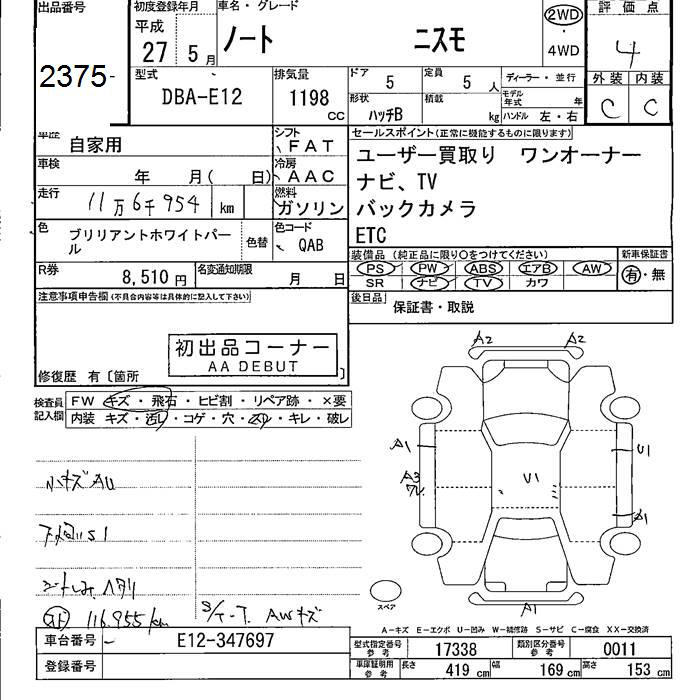 出品番号
2375-
初度登録年月
平成
27 5月
車名・グレード
ノート ニスモ
2WD
・
4WD
評価点
4
外装 内装
C C
型式
DBA-E12
排気量
1198
cc
ドア 5
定員 5人
ディーラー・並行
形状
ハッチB
積載
kg
モデル年式 年
ハンドル 左・右
車歴 自家用
シフト
FAT
車検
年 月( 日)
冷房
AAC
走行
11万6千954 km
燃料
ガソリン
色
ブリリアントホワイトパール
色替
色コード
QAB
R券
8,510 円
名変通知期限
月 日
セールスポイント(正常に機能するものに限ります)
ユーザー買取り ワンオーナー
ナビ、TV
バックカメラ
ETC
装備品(純正品に限り○をつけてください)
PS PW ABS エアB AW
SR ナビ TV カワ
新車保証書
有・無
後日品
保証書・取説
注意事項申告欄(不具合内容等は具体的に記入して下さい)
初出品コーナー
AA DEBUT
修復歴 有〔箇所
検査員
記入欄
FW キズ・飛石・ヒビ割・リペア跡・×要
内装 キズ・汚レ・コゲ・穴・スリ・キレ・破レ
小キズAU
下廻りS1
シートしみ ヘタリ
116.955km
S/T-T. AWキズ
A2 A2
A1
A3
U1
U1
A1
A1
スペア
A-キズ E-エクボ U-凹み W-補修跡 S-サビ C-腐食 XX-交換済
車台番号
E12-347697
登録番号
型式指定番号
参考
17338
類別区分番号
参考
0011
車庫証明用
参考
長さ 419 cm
幅 169 cm
高さ 153 cm